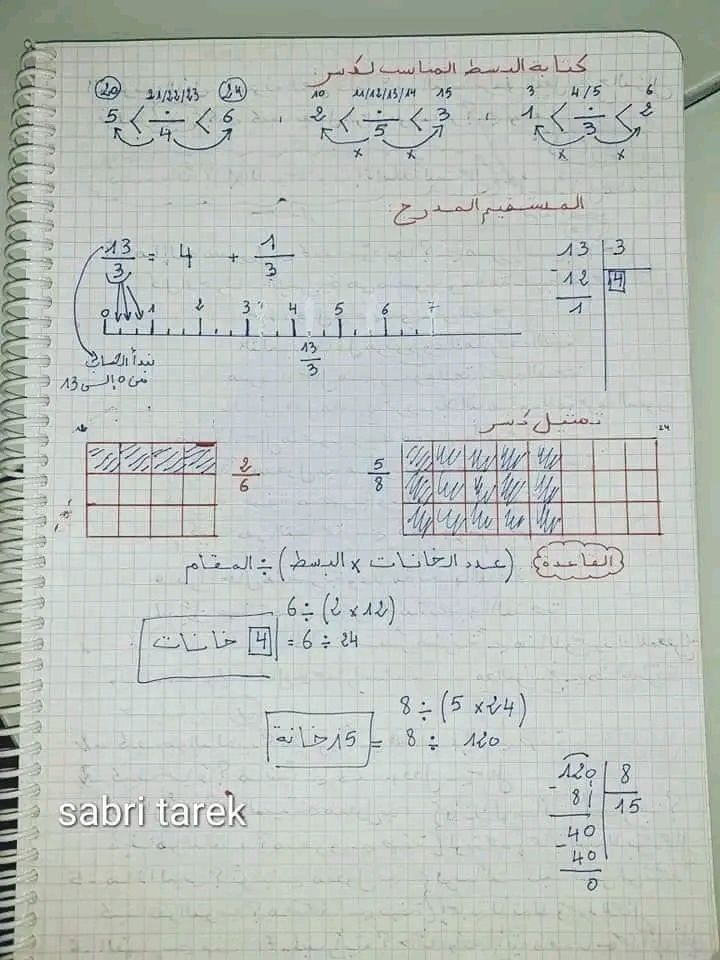 كتابة البسط المناسب لكسر
20 21/22/23 24 10 11/12/13/14 15 3 4/5 6
5 < ÷/4 < 6 , 2 < ÷/5 < 3 , 1 < ÷/3 < 2
x x x x
المستقيم المدرج
13/3 = 4 + 1/3
13 3
- 12 4
1
0 1 2 3 4 5 6 7
13/3
نبدأ الحساب
من 0 إلى 13
تمثيل كسر
2/6
5/8
24
القاعدة (عدد الخانات x البسط) ÷ المقام
6 ÷ (2 x 12)
4 خانات = 6 ÷ 24
8 ÷ (5 x 24)
15 خانة = 8 ÷ 120
120 8
- 8 15
40
- 40
0
sabri tarek